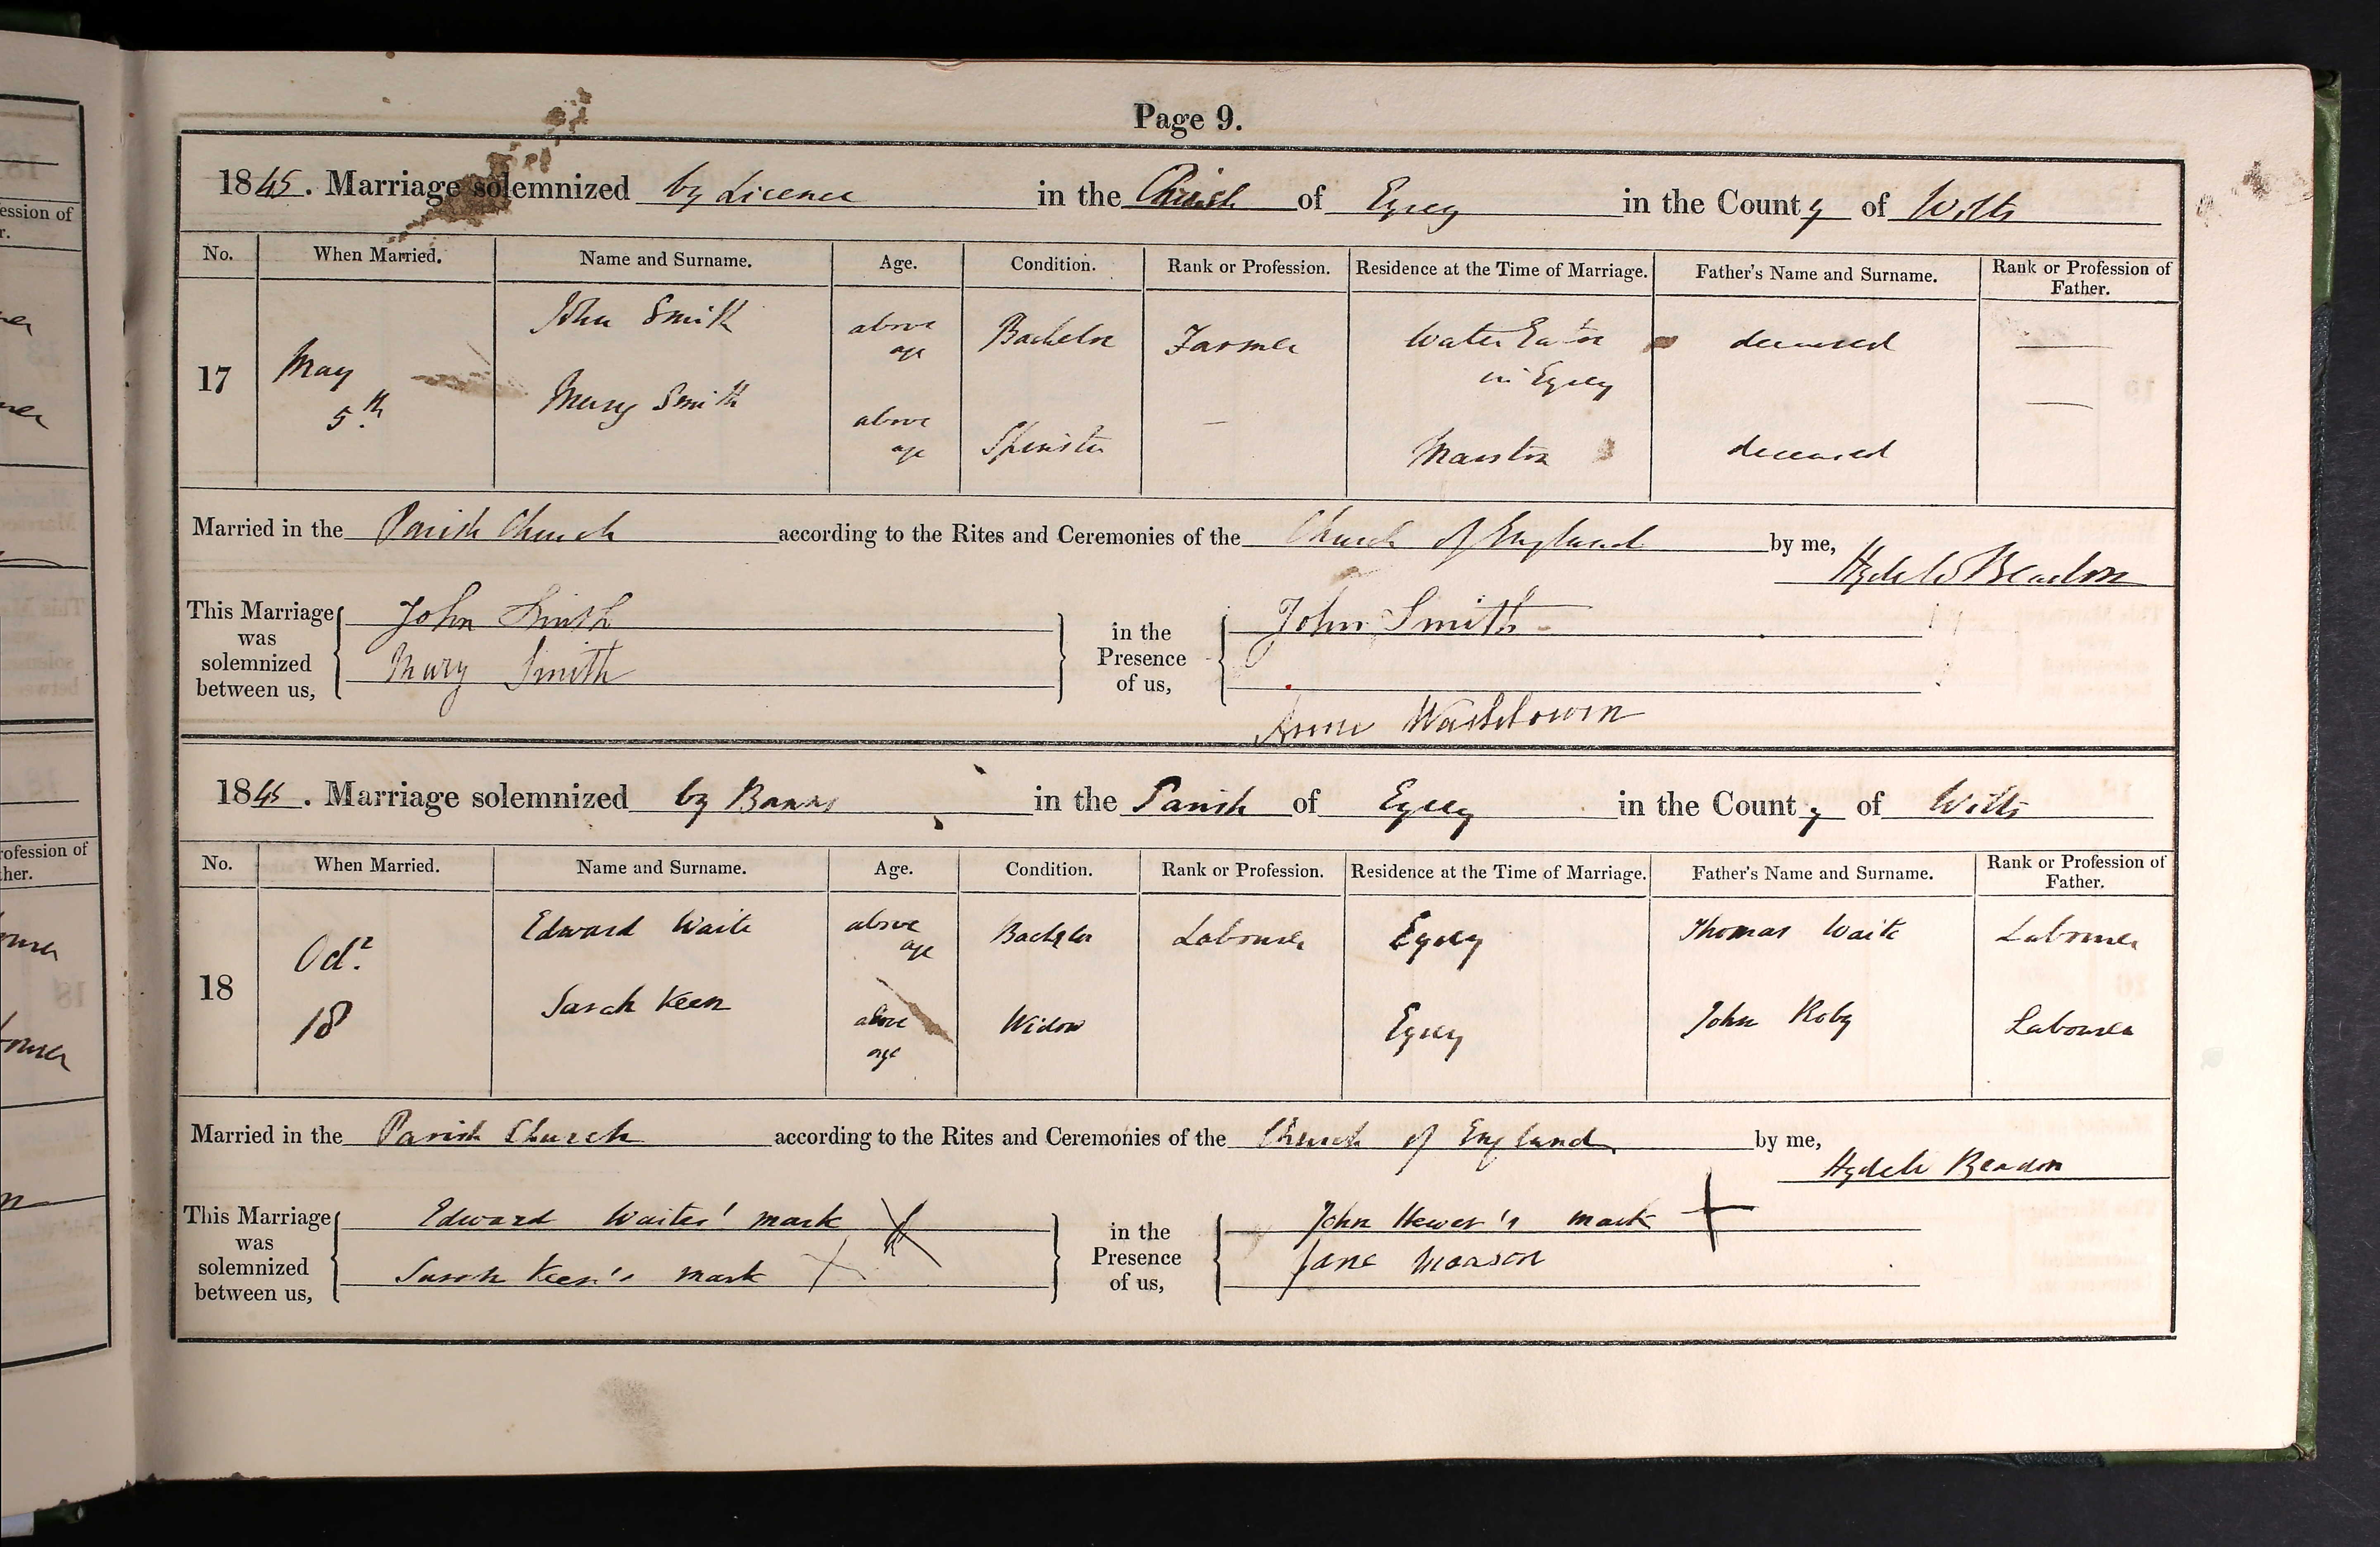 Page 9.
1845. Marriage solemnized by Licence in the Parish of Eysey in the County of Wilts
No. When Married. Name and Surname. Age. Condition. Rank or Profession. Residence at the Time of Marriage. Father's Name and Surname. Rank or Profession of Father.
17 May 5th John Smith above age Bachelor Farmer Water Eaton in Eysey deceased —
Mary Smith above age Spinster — Marston deceased —
Married in the Parish Church according to the Rites and Ceremonies of the Church of England by me, Hyde W Beadon
This Marriage was solemnized between us, John Smith Mary Smith in the Presence of us, John Smith
Anne
1845. Marriage solemnized by Banns in the Parish of Eysey in the County of Wilts
No. When Married. Name and Surname. Age. Condition. Rank or Profession. Residence at the Time of Marriage. Father's Name and Surname. Rank or Profession of Father.
18 Octr. 18 Edward Waite above age Bachelor Labourer Eysey Thomas Waite Labourer
Sarah Keen above age Widow Eysey John Roby Labourer
Married in the Parish Church according to the Rites and Ceremonies of the Church of England by me, Hyde W Beadon
This Marriage was solemnized between us, Edward Waites' mark X Sarah Keen's mark X in the Presence of us, John Hewer's mark + Jane Monson
ession of
r.
rofession of
ther.